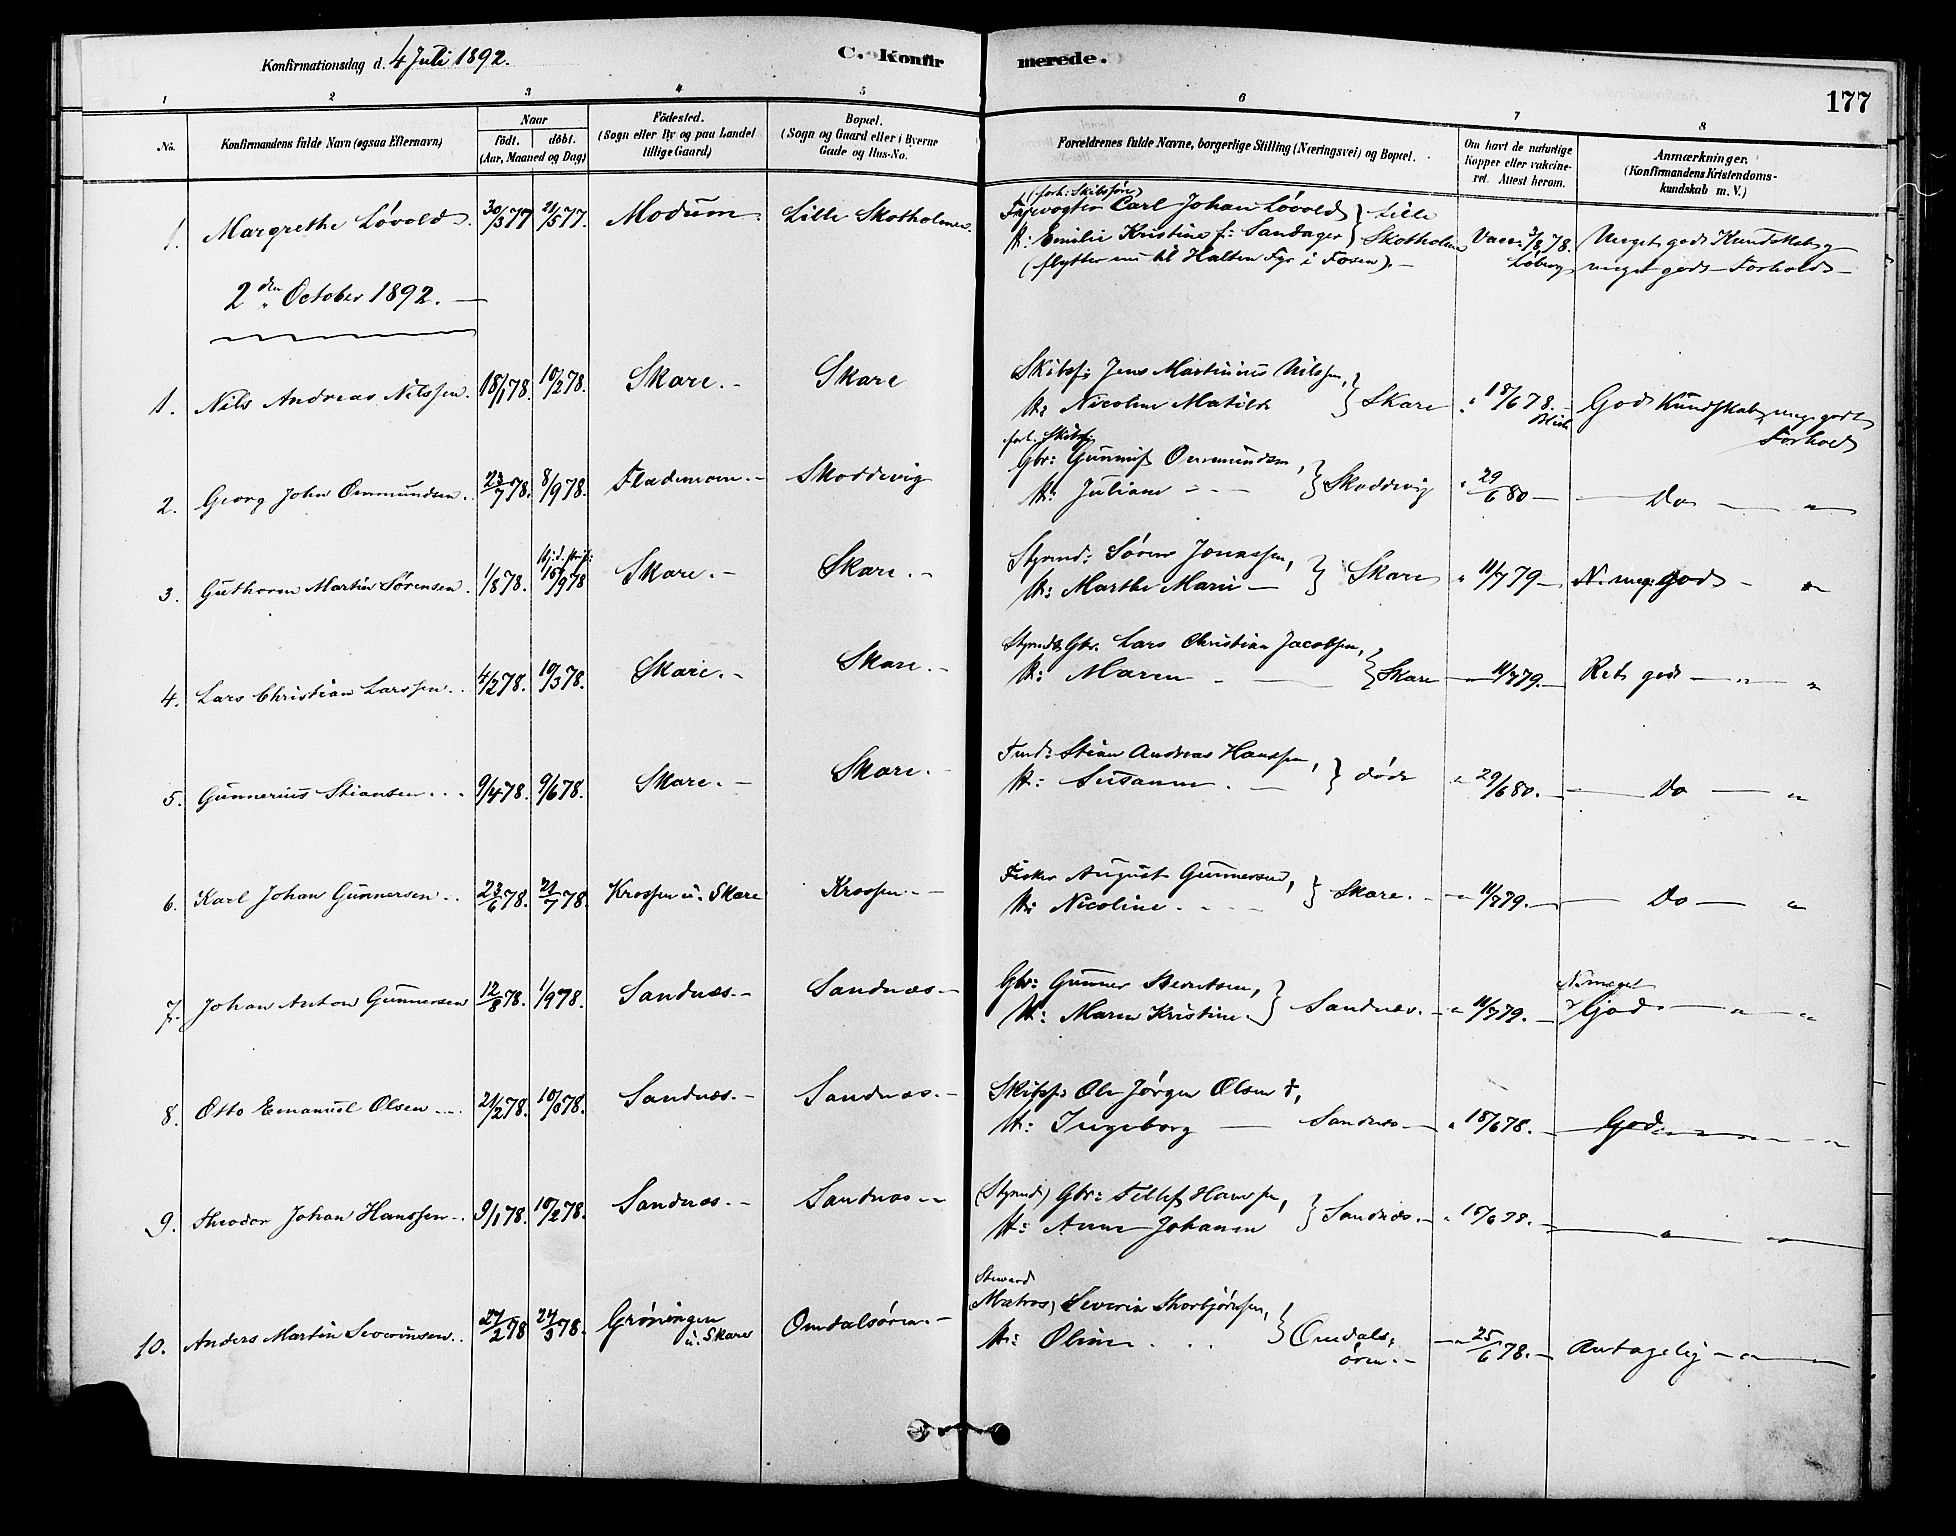 Konfirmationsdag d. 4 Juli 1892.
C. Konfirmerede.
177
1 2 3 4 5 6 7 8
No.
Konfirmandens fulde Navn (ogsaa Efternavn)
Naar
födt. döbt.
(Aar, Maaned og Dag)
Födested.
(Sogn eller By og paa Landet
tillige Gaard)
Bopæl.
(Sogn og Gaard eller i Byerne
Gade og Hus-No.
Forældrenes fulde Navne, borgerlige Stilling (Næringsvei) og Bopæl.
Om havt de naturlige
Kopper eller vakcine-
ret. Attest herom.
Anmærkninger.
(Konfirmandens Kristendoms-
kundskab m. V.)
1. Margrethe Lövold. 30/3 77 21/5 77. Modum. Lille Skotholmen.
(forh: Skibsförer)
Fyrvogter Carl Johan Lövold } Lille
H: Emilie Kristine f: Sandager } Skotholmen
(flytter nu til Halten Fyr i Fosen). –
Vacc: 3/8 78.
Meget god Kundskab og
meget godt Forhold –
2den October 1892. –
1. Nils Andreas Nilssen. 18/1 78. 10/2 78. Skare. – Skare
Skibsf: Jens Martinius Nilssen,
H: Nicoline Matilde } Skare
18/6 78. –
God Kundskab, meg. godt
Forhold
2. Georg John Ommundsen. 23/7 78. 8/9 78. Flademoen. – Skoddevig
Gbr: Gunnuf Ommundsen,
H: Juliane – – } Skoddevig
29/6 80 –
– Do – "
3. Guthorm Martin Sörensen. 1/8 78. 15/9 78 Skare. – Skare. –
Styrmd: Sören Jonassen,
H: Marthe Marie – } Skare
" 11/7 79 –
N. meg. God – "
4. Lars Christian Larssen. 4/2 78. 10/3 78. Skare. – Skare. –
Styrmd & Gbr. Lars Christian Jacobsen,
H: Maren – } Skare
– " 11/7 79. –
Ret god – " – "
5. Gunnerius Stiansen. 9/4 78. 9/6 78. Skare. – Skare. –
Stian Andreas Hanssen,
H: Susanne. – } döde
" 29/6 80. –
– Do – "
6. Karl Johan Gunnersen. 23/6 78. 21/7 78. Krossen u. Skare Krossen. –
Fisker August Gunnersen,
H: Nicoline. } Skare. –
" 11/7 79. –
– Do – "
7. Johan Anton Gunnersen 12/8 78. 1/9 78. Sandnæs. – Sandnæs. –
Gbr: Gunner Berntsen,
H: Maren Kristine. } Sandnæs. –
" 11/7 79. –
N. meget
God – " – "
8. Otto Emanuel Olsen 21/2 78. 10/3 78. Sandnæs. – Sandnæs. –
Skibsf: Ole Jörgen Olsen †,
H: Ingeborg – Sandnæs –
" 18/6 78. –
– God –
9. Theodor Johan Hanssen. 9/1 78. 10/2 78. Sandnæs. – Sandnæs –
(Styrmd) Gbr: Tellef Hanssen,
H: Anne Johanne } Sandnæs. –
– " – " –
10. Anders Martin Severinsen. 27/2 78 24/3 78. Gröningen
u. Skare Omdalsören. –
Steward
(Matros) Severin Thorbjörnsen,
H: Oline } Omdals-
ören. –
– " 25/6 78. –
Antagelig – " –